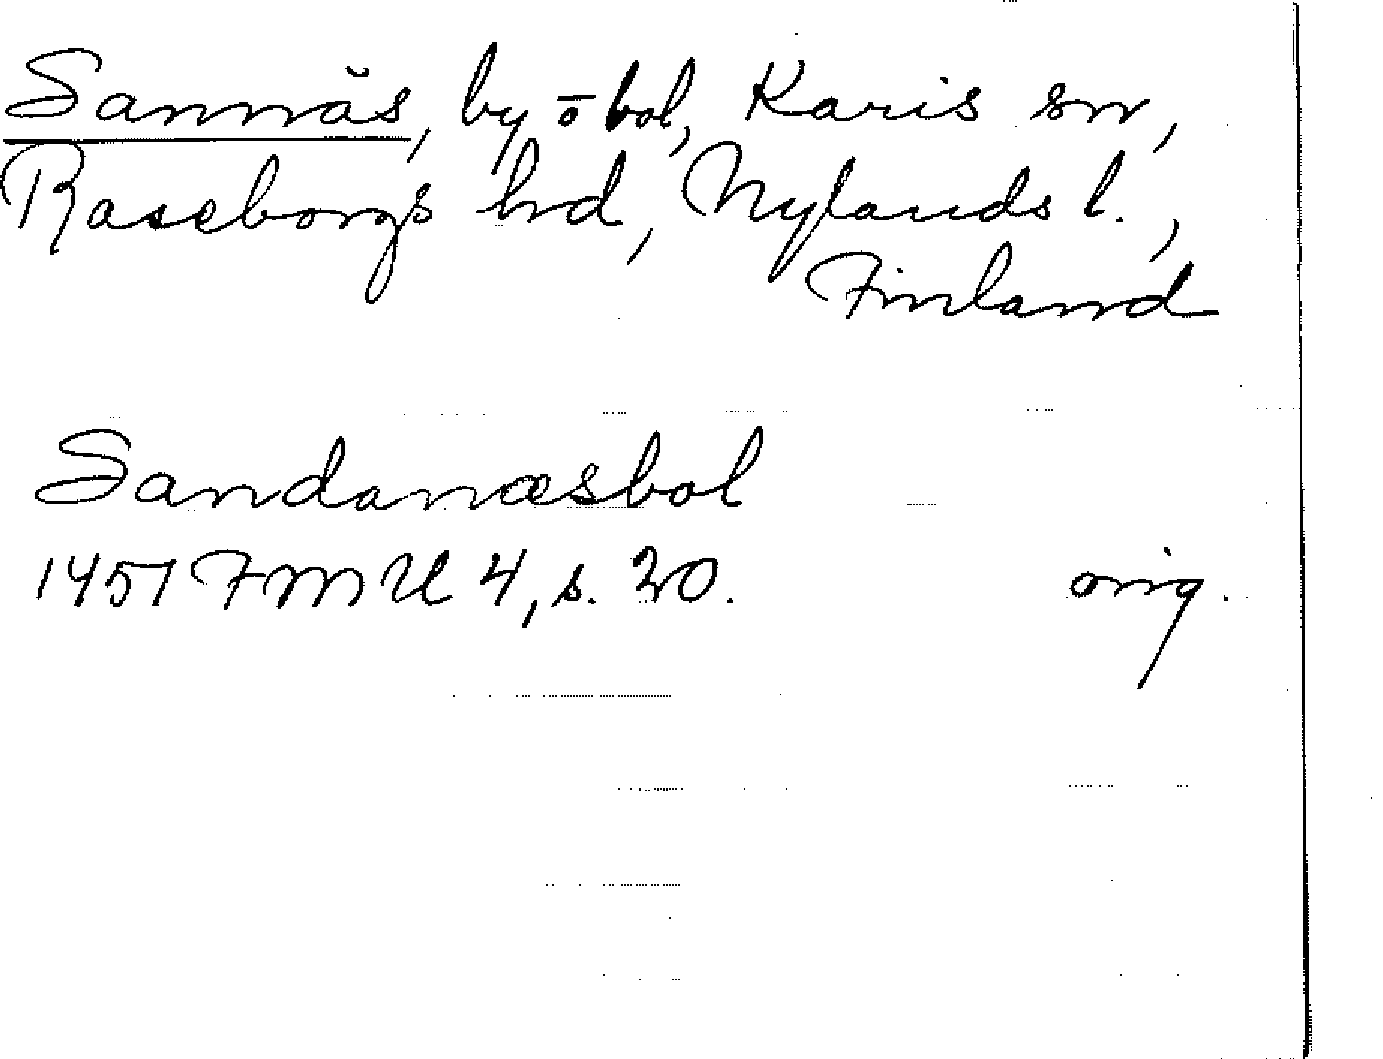 Sannäs, by o bol, Karis sn,
Raseborgs hrd, Nylands l.,
Finland
Sandanæsbol
1451 FMU 4, s. 20. orig.